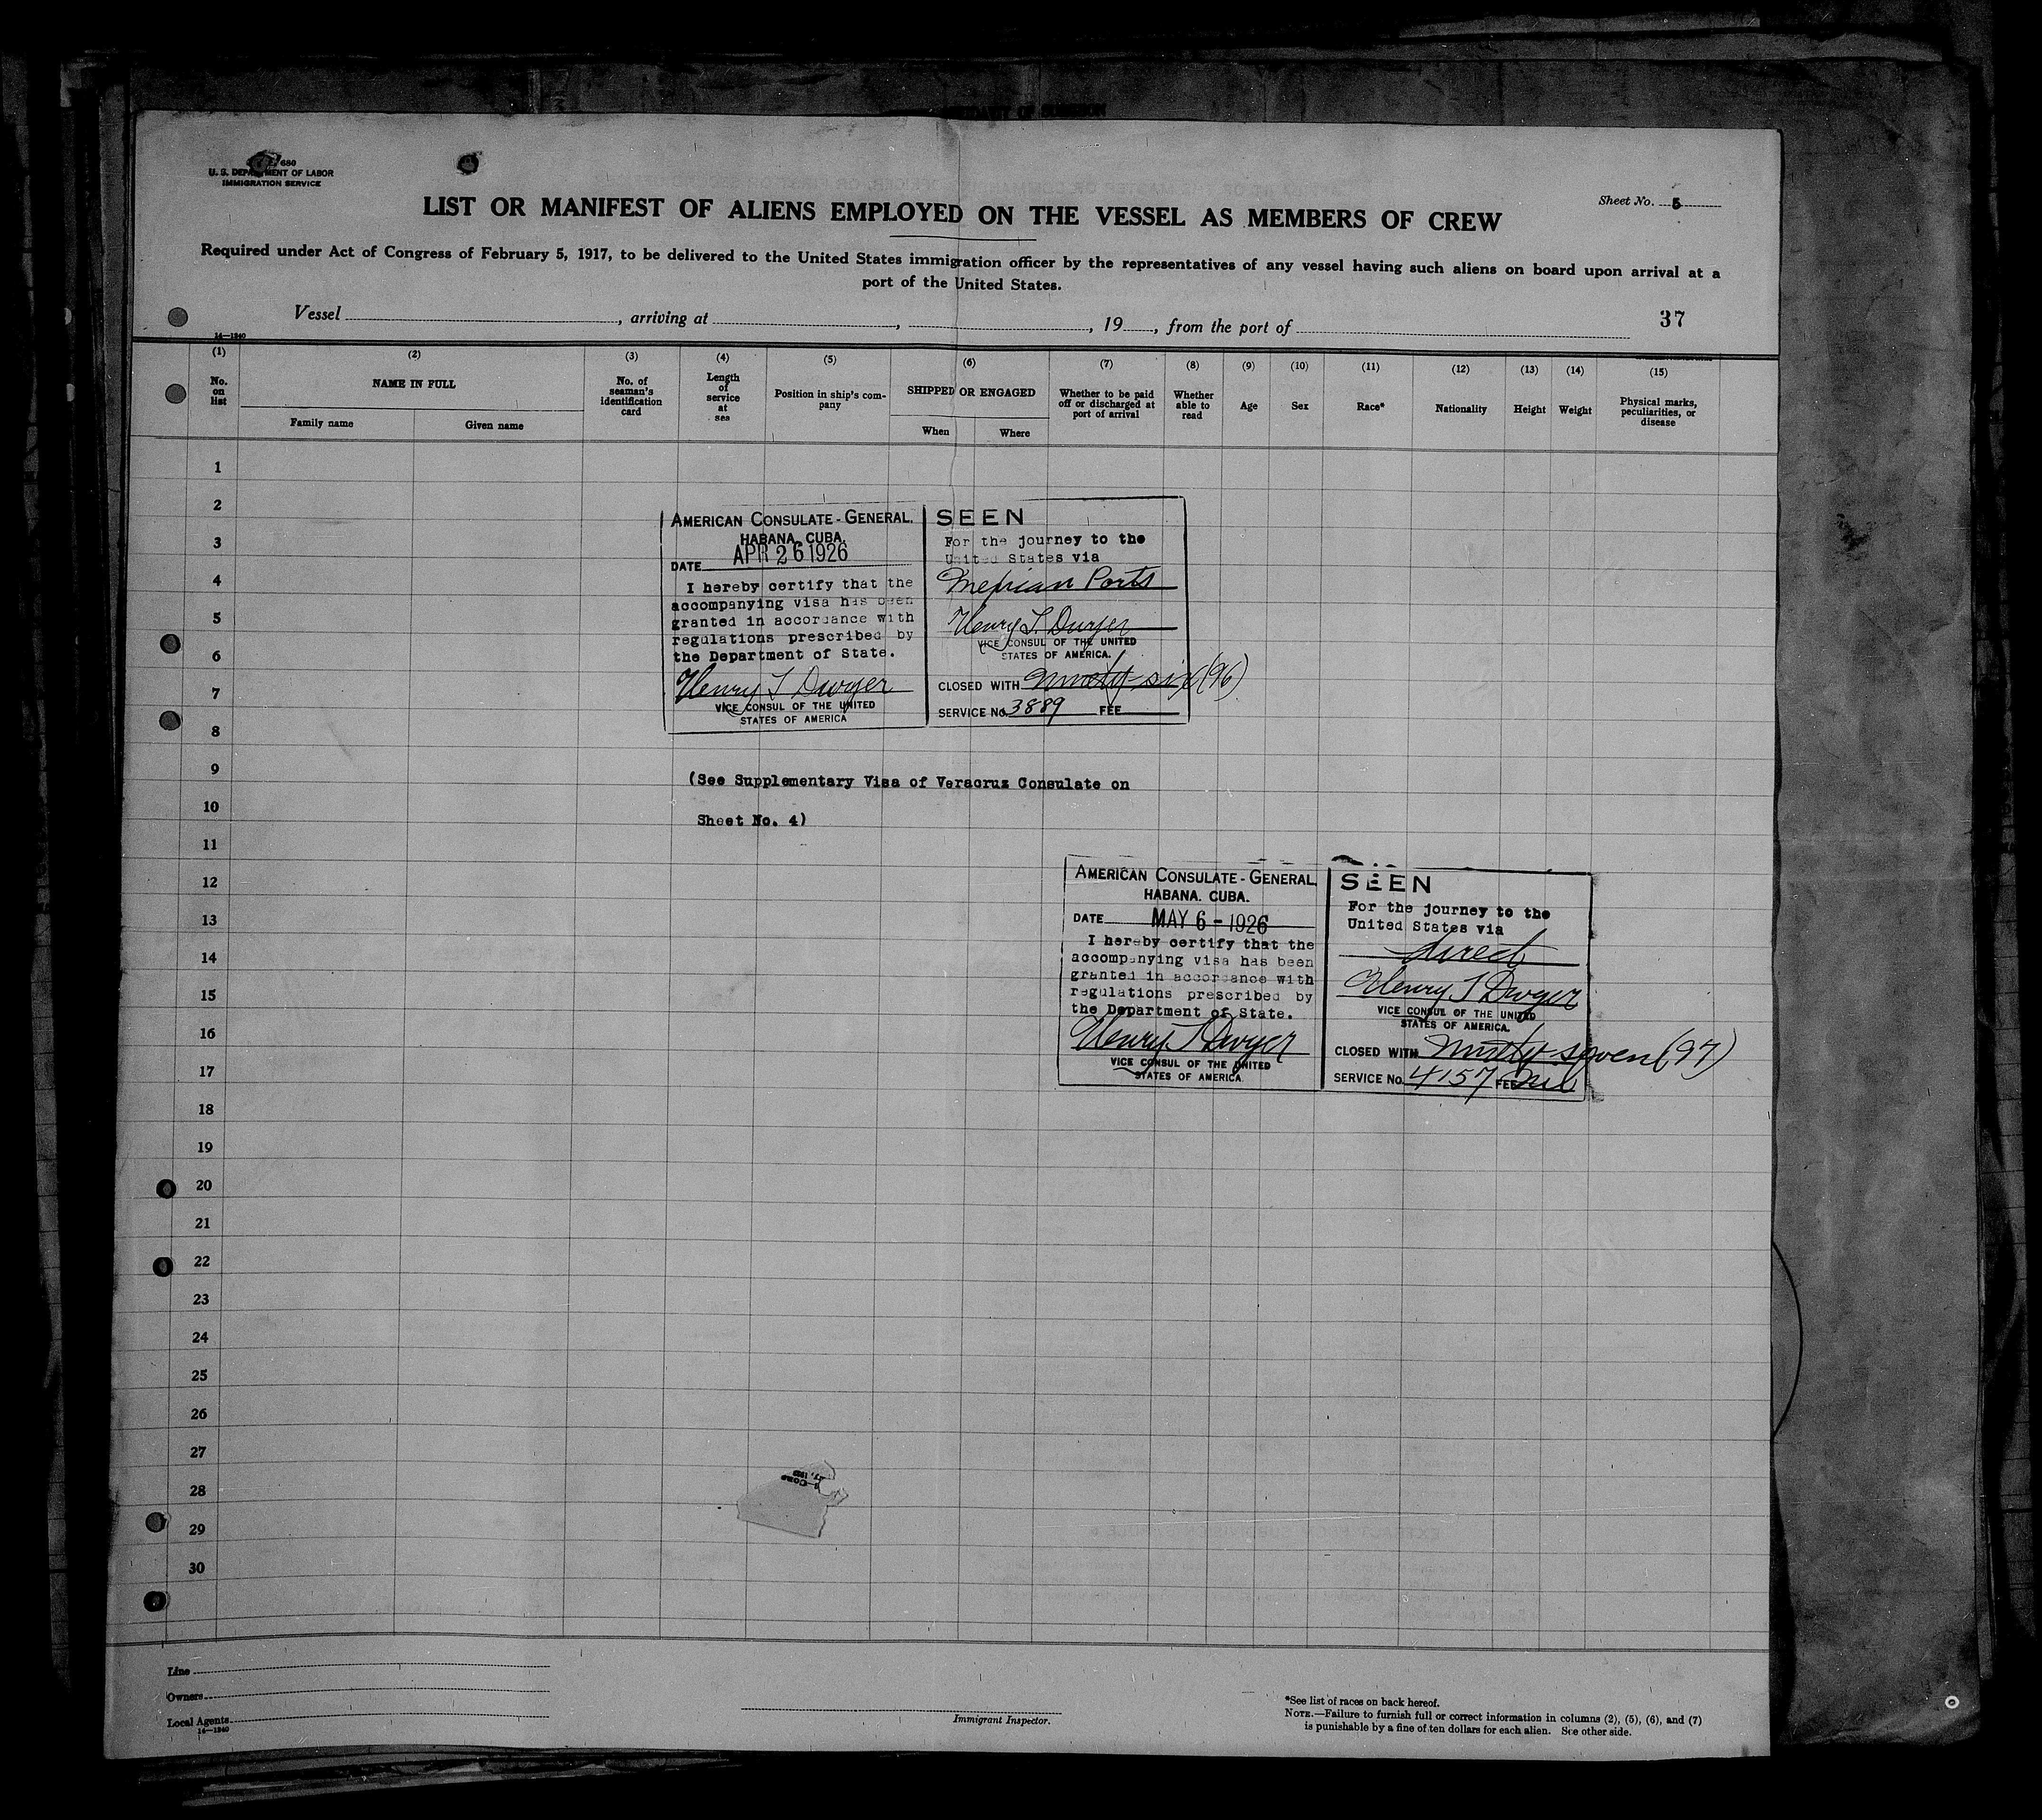 680
U. S. DEPARTMENT OF LABOR
IMMIGRATION SERVICE
Sheet No. 5
LIST OR MANIFEST OF ALIENS EMPLOYED ON THE VESSEL AS MEMBERS OF CREW
Required under Act of Congress of February 5, 1917, to be delivered to the United States immigration officer by the representatives of any vessel having such aliens on board upon arrival at a
port of the United States.
Vessel , arriving at , , 19 , from the port of
37
14—1240
(1) (2) (3) (4) (5) (6) (7) (8) (9) (10) (11) (12) (13) (14) (15)
No. on list
NAME IN FULL
Family name
Given name
No. of seaman's identification card
Length of service at sea
Position in ship's company
SHIPPED OR ENGAGED
When
Where
Whether to be paid off or discharged at port of arrival
Whether able to read
Age
Sex
Race*
Nationality
Height
Weight
Physical marks, peculiarities, or disease
1
2
3
4
5
6
7
8
9
10
11
12
13
14
15
16
17
18
19
20
21
22
23
24
25
26
27
28
29
30
AMERICAN CONSULATE-GENERAL.
HABANA. CUBA.
DATE APR 26 1926
I hereby certify that the
accompanying visa has been
granted in accordance with
regulations prescribed by
the Department of State.
Henry T Dwyer
VICE CONSUL OF THE UNITED
STATES OF AMERICA
SEEN
For the journey to the
United States via
Mexican Ports
Henry T. Dwyer
VICE CONSUL OF THE UNITED
STATES OF AMERICA.
CLOSED WITH Ninety-six (96)
SERVICE No. 3889 FEE
(See Supplementary Visa of Veracruz Consulate on
Sheet No. 4)
AMERICAN CONSULATE-GENERAL.
HABANA. CUBA.
DATE MAY 6 - 1926
I hereby certify that the
accompanying visa has been
granted in accordance with
regulations prescribed by
the Department of State.
Henry T Dwyer
VICE CONSUL OF THE UNITED
STATES OF AMERICA.
SEEN
For the journey to the
United States via
direct
Henry T Dwyer
VICE CONSUL OF THE UNITED
STATES OF AMERICA.
CLOSED WITH Ninety-seven (97)
SERVICE No. 4157 FEE Nil
Line
Owners
Local Agents
14—1240
Immigrant Inspector.
*See list of races on back hereof.
NOTE.—Failure to furnish full or correct information in columns (2), (5), (6), and (7)
is punishable by a fine of ten dollars for each alien. See other side.